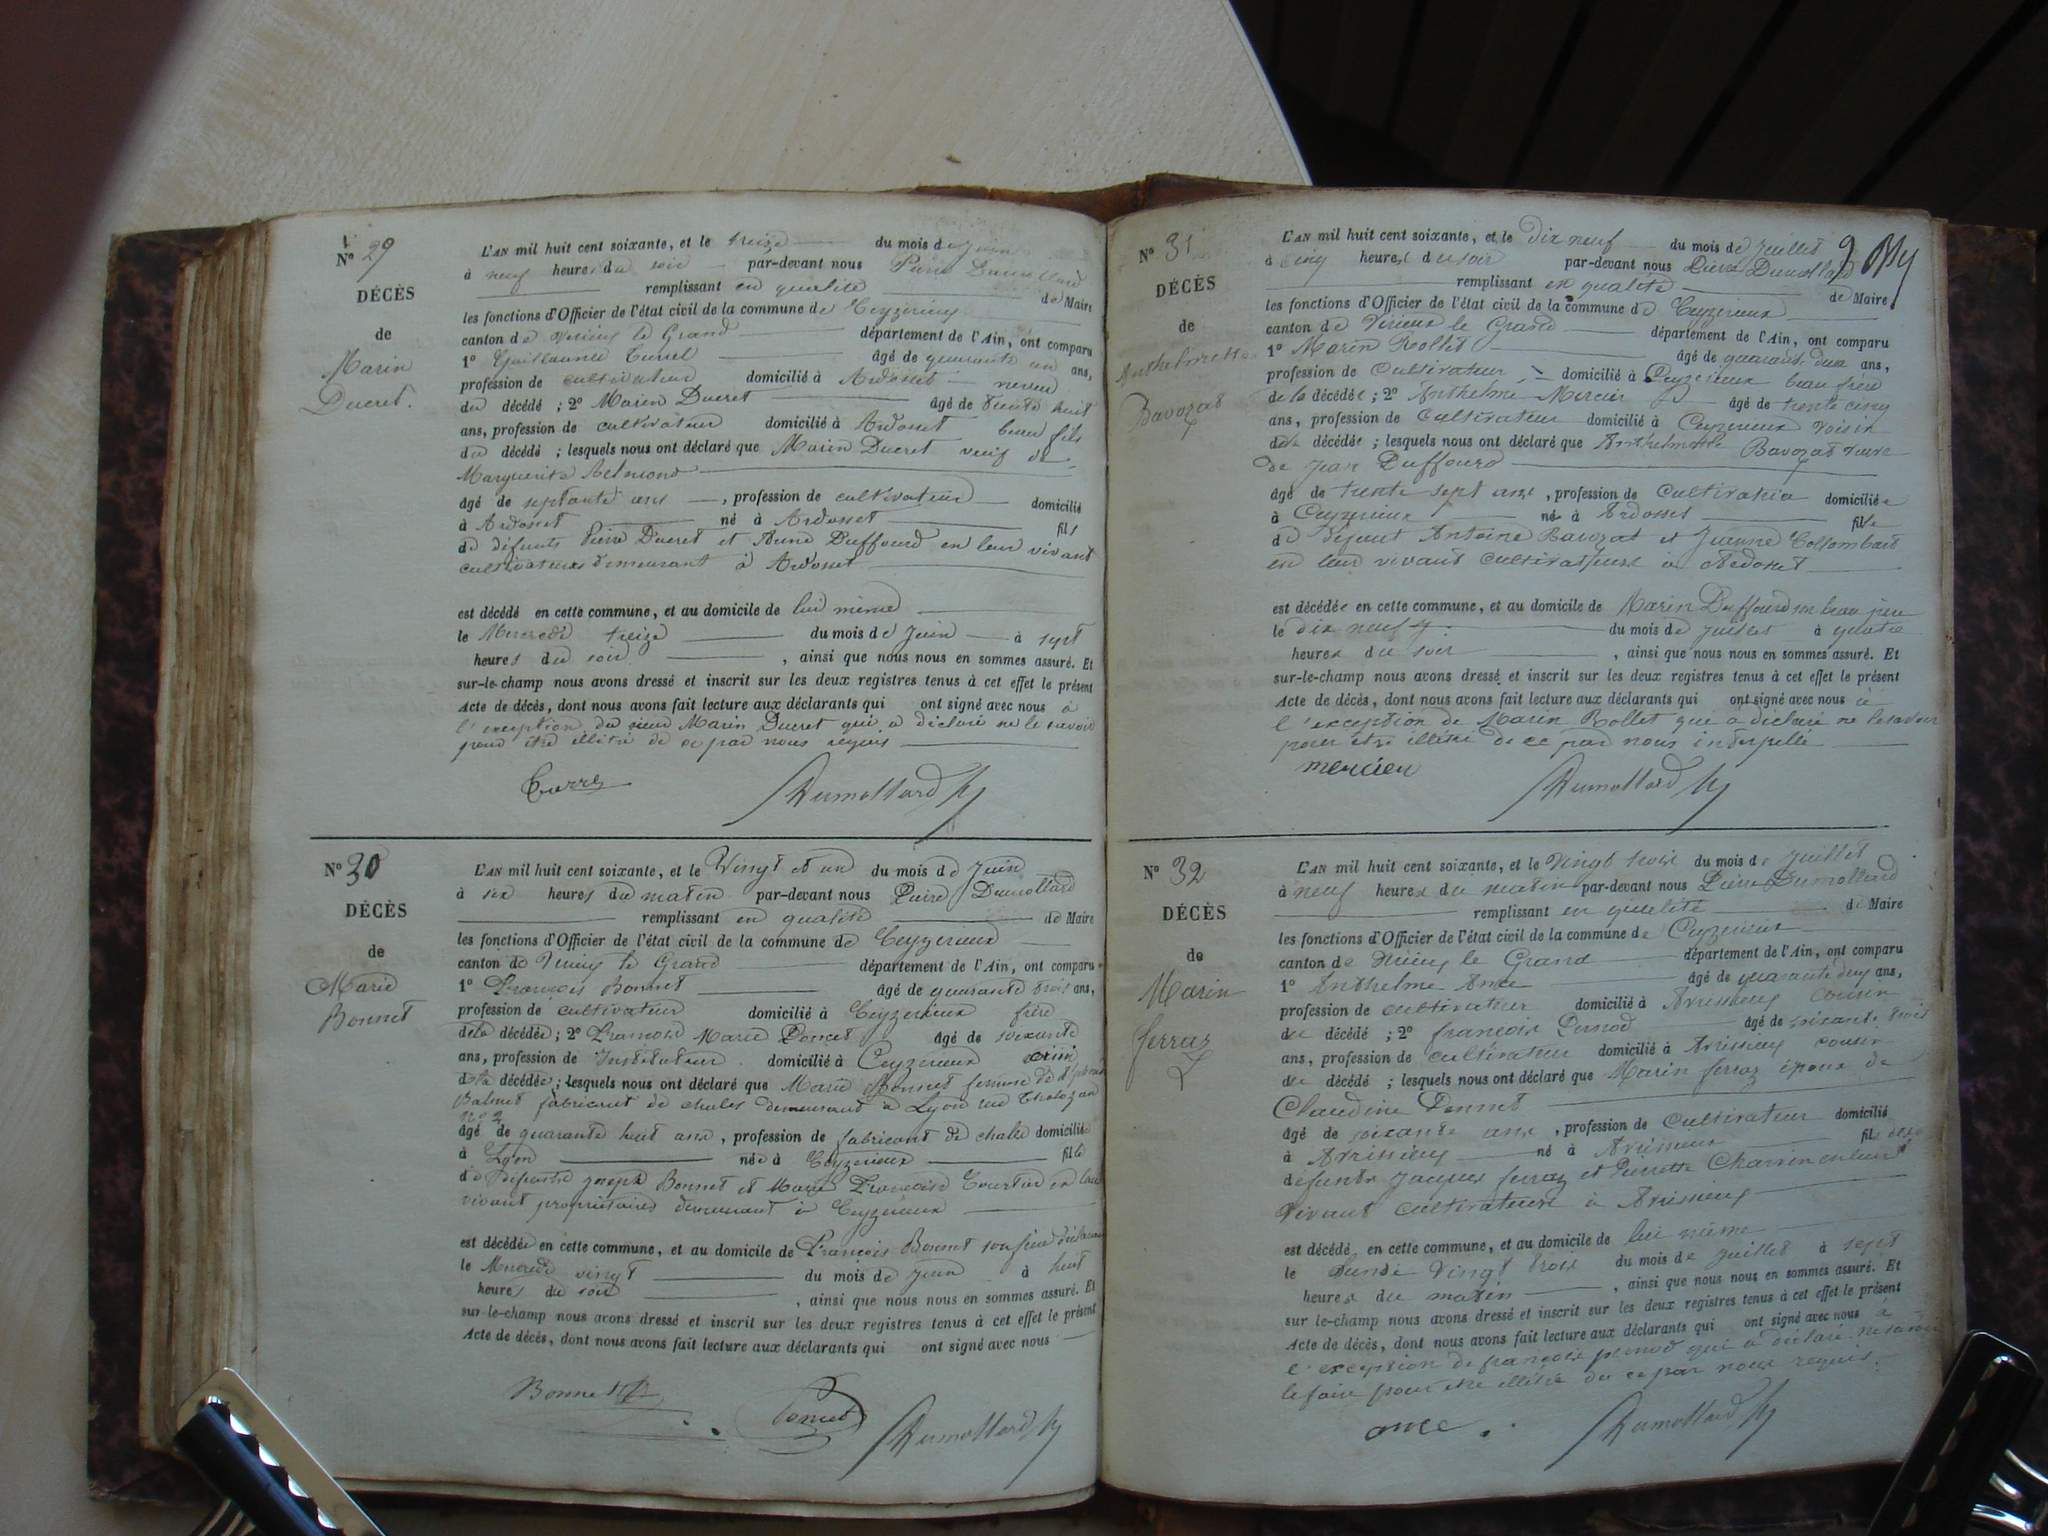 N° 29
DÉCÈS
de
Marin
Ducret.
L'AN mil huit cent soixante, et le treize du mois de juin
à neuf heures du soir par-devant nous Pierre Dumollard
remplissant en qualité de Maire
les fonctions d'Officier de l'état civil de la commune de Ceyzerieux
canton de Virieux le Grand département de l'Ain, ont comparu
1° Guillaume âgé de quarante un ans,
profession de cultivateur domicilié à Ardosset neveu
du décédé ; 2° Marin Ducret âgé de trente huit
ans, profession de cultivateur domicilié à Ardosset beau fils
du décédé ; lesquels nous ont déclaré que Marin Ducret veuf de
Marguerite
âgé de septante ans, profession de cultivateur domicilié
à Ardosset né à Ardosset fils
de défunts Pierre Ducret et Anne Duffourd en leur vivant
cultivateurs demeurant à Ardosset
est décédé en cette commune, et au domicile de lui même
le Mercredi treize du mois de Juin à sept
heures du soir, ainsi que nous nous en sommes assuré. Et
sur-le-champ nous avons dressé et inscrit sur les deux registres tenus à cet effet le présent
Acte de décès, dont nous avons fait lecture aux déclarants qui ont signé avec nous à
l'exception du sieur Marin Ducret qui a déclaré ne le savoir
pour être illétré de ce par nous requis
Dumollard
N° 30
DÉCÈS
de
Marie
Bonnet
L'AN mil huit cent soixante, et le Vingt et un du mois de Juin
à six heures du matin par-devant nous Pierre Dumollard
remplissant en qualité de Maire
les fonctions d'Officier de l'état civil de la commune de Ceyzerieux
canton de Virieux le Grand département de l'Ain, ont comparu
1° François Bonnet âgé de quarante trois ans,
profession de cultivateur domicilié à Ceyzerieux frère
de la décédée ; 2° François Marie Poncet âgé de soixante
ans, profession de Instituteur domicilié à Ceyzerieux
de la décédée ; lesquels nous ont déclaré que Marie Bonnet femme de
Balmet fabricant de chales demeurant à Lyon rue Tholozan
n° 2
âgé de quarante huit ans, profession de fabricant de chales domiciliée
à Lyon née à Ceyzerieux fille
de Joseph Bonnet et Marie Françoise en leur
vivant propriétaires demeurant à Ceyzerieux
est décédée en cette commune, et au domicile de François Bonnet son frère déclarant
le Mercredi vingt du mois de Juin à huit
heures du soir, ainsi que nous nous en sommes assuré. Et
sur-le-champ nous avons dressé et inscrit sur les deux registres tenus à cet effet le présent
Acte de décès, dont nous avons fait lecture aux déclarants qui ont signé avec nous
Bonnet Poncet Dumollard
N° 31
DÉCÈS
de
Anthelmette
Bavozat
L'AN mil huit cent soixante, et le dix neuf du mois de Juillet
à cinq heures du soir par-devant nous Pierre Dumollard
remplissant en qualité de Maire
les fonctions d'Officier de l'état civil de la commune de Ceyzerieux
canton de Virieux le Grand département de l'Ain, ont comparu
1° Marin Rollet âgé de quarante deux ans,
profession de Cultivateur domicilié à Ceyzerieux beau frère
de la décédée ; 2° Anthelme Mercier âgé de trente cinq
ans, profession de Cultivateur domicilié à Ceyzerieux voisin
de la décédée ; lesquels nous ont déclaré que Anthelmette Bavozat veuve
de Jean Duffourd
âgé de trente sept ans, profession de Cultivatrice domiciliée
à Ceyzerieux né à Ardosset fille
de défunt Antoine Bavozat et Jeanne Collombart
en leur vivant cultivateurs à Ardosset
est décédée en cette commune, et au domicile de Marin Duffourd son beau père
le dix neuf du mois de Juillet à quatre
heures du soir, ainsi que nous nous en sommes assuré. Et
sur-le-champ nous avons dressé et inscrit sur les deux registres tenus à cet effet le présent
Acte de décès, dont nous avons fait lecture aux déclarants qui ont signé avec nous à
l'exception de Marin Rollet qui a déclaré ne le savoir
pour être illétré de ce par nous interpellé
mercier Dumollard
N° 32
DÉCÈS
de
Marin
ferraz
L'AN mil huit cent soixante, et le Vingt trois du mois de Juillet
à neuf heures du matin par-devant nous Pierre Dumollard
remplissant en qualité de Maire
les fonctions d'Officier de l'état civil de la commune de Ceyzerieux
canton de Virieux le Grand département de l'Ain, ont comparu
1° Anthelme Ance âgé de quarante deux ans,
profession de cultivateur domicilié à Avrissieux cousin
du décédé ; 2° françois Pernod âgé de soixante trois
ans, profession de cultivateur domicilié à Avrissieux cousin
du décédé ; lesquels nous ont déclaré que Marin ferraz époux de
Claudine
âgé de soixante ans, profession de Cultivateur domicilié
à Avrissieux né à Avrissieux fils des
défunts Jacques ferraz et Pierrette Charvin en leur
vivant cultivateurs à Avrissieux
est décédé en cette commune, et au domicile de lui même
le Lundi Vingt trois du mois de Juillet à sept
heures du matin, ainsi que nous nous en sommes assuré. Et
sur-le-champ nous avons dressé et inscrit sur les deux registres tenus à cet effet le présent
Acte de décès, dont nous avons fait lecture aux déclarants qui ont signé avec nous à
l'exception de françois pernod qui a déclaré ne savoir
le faire pour être illétré de ce par nous requis.
ance Dumollard